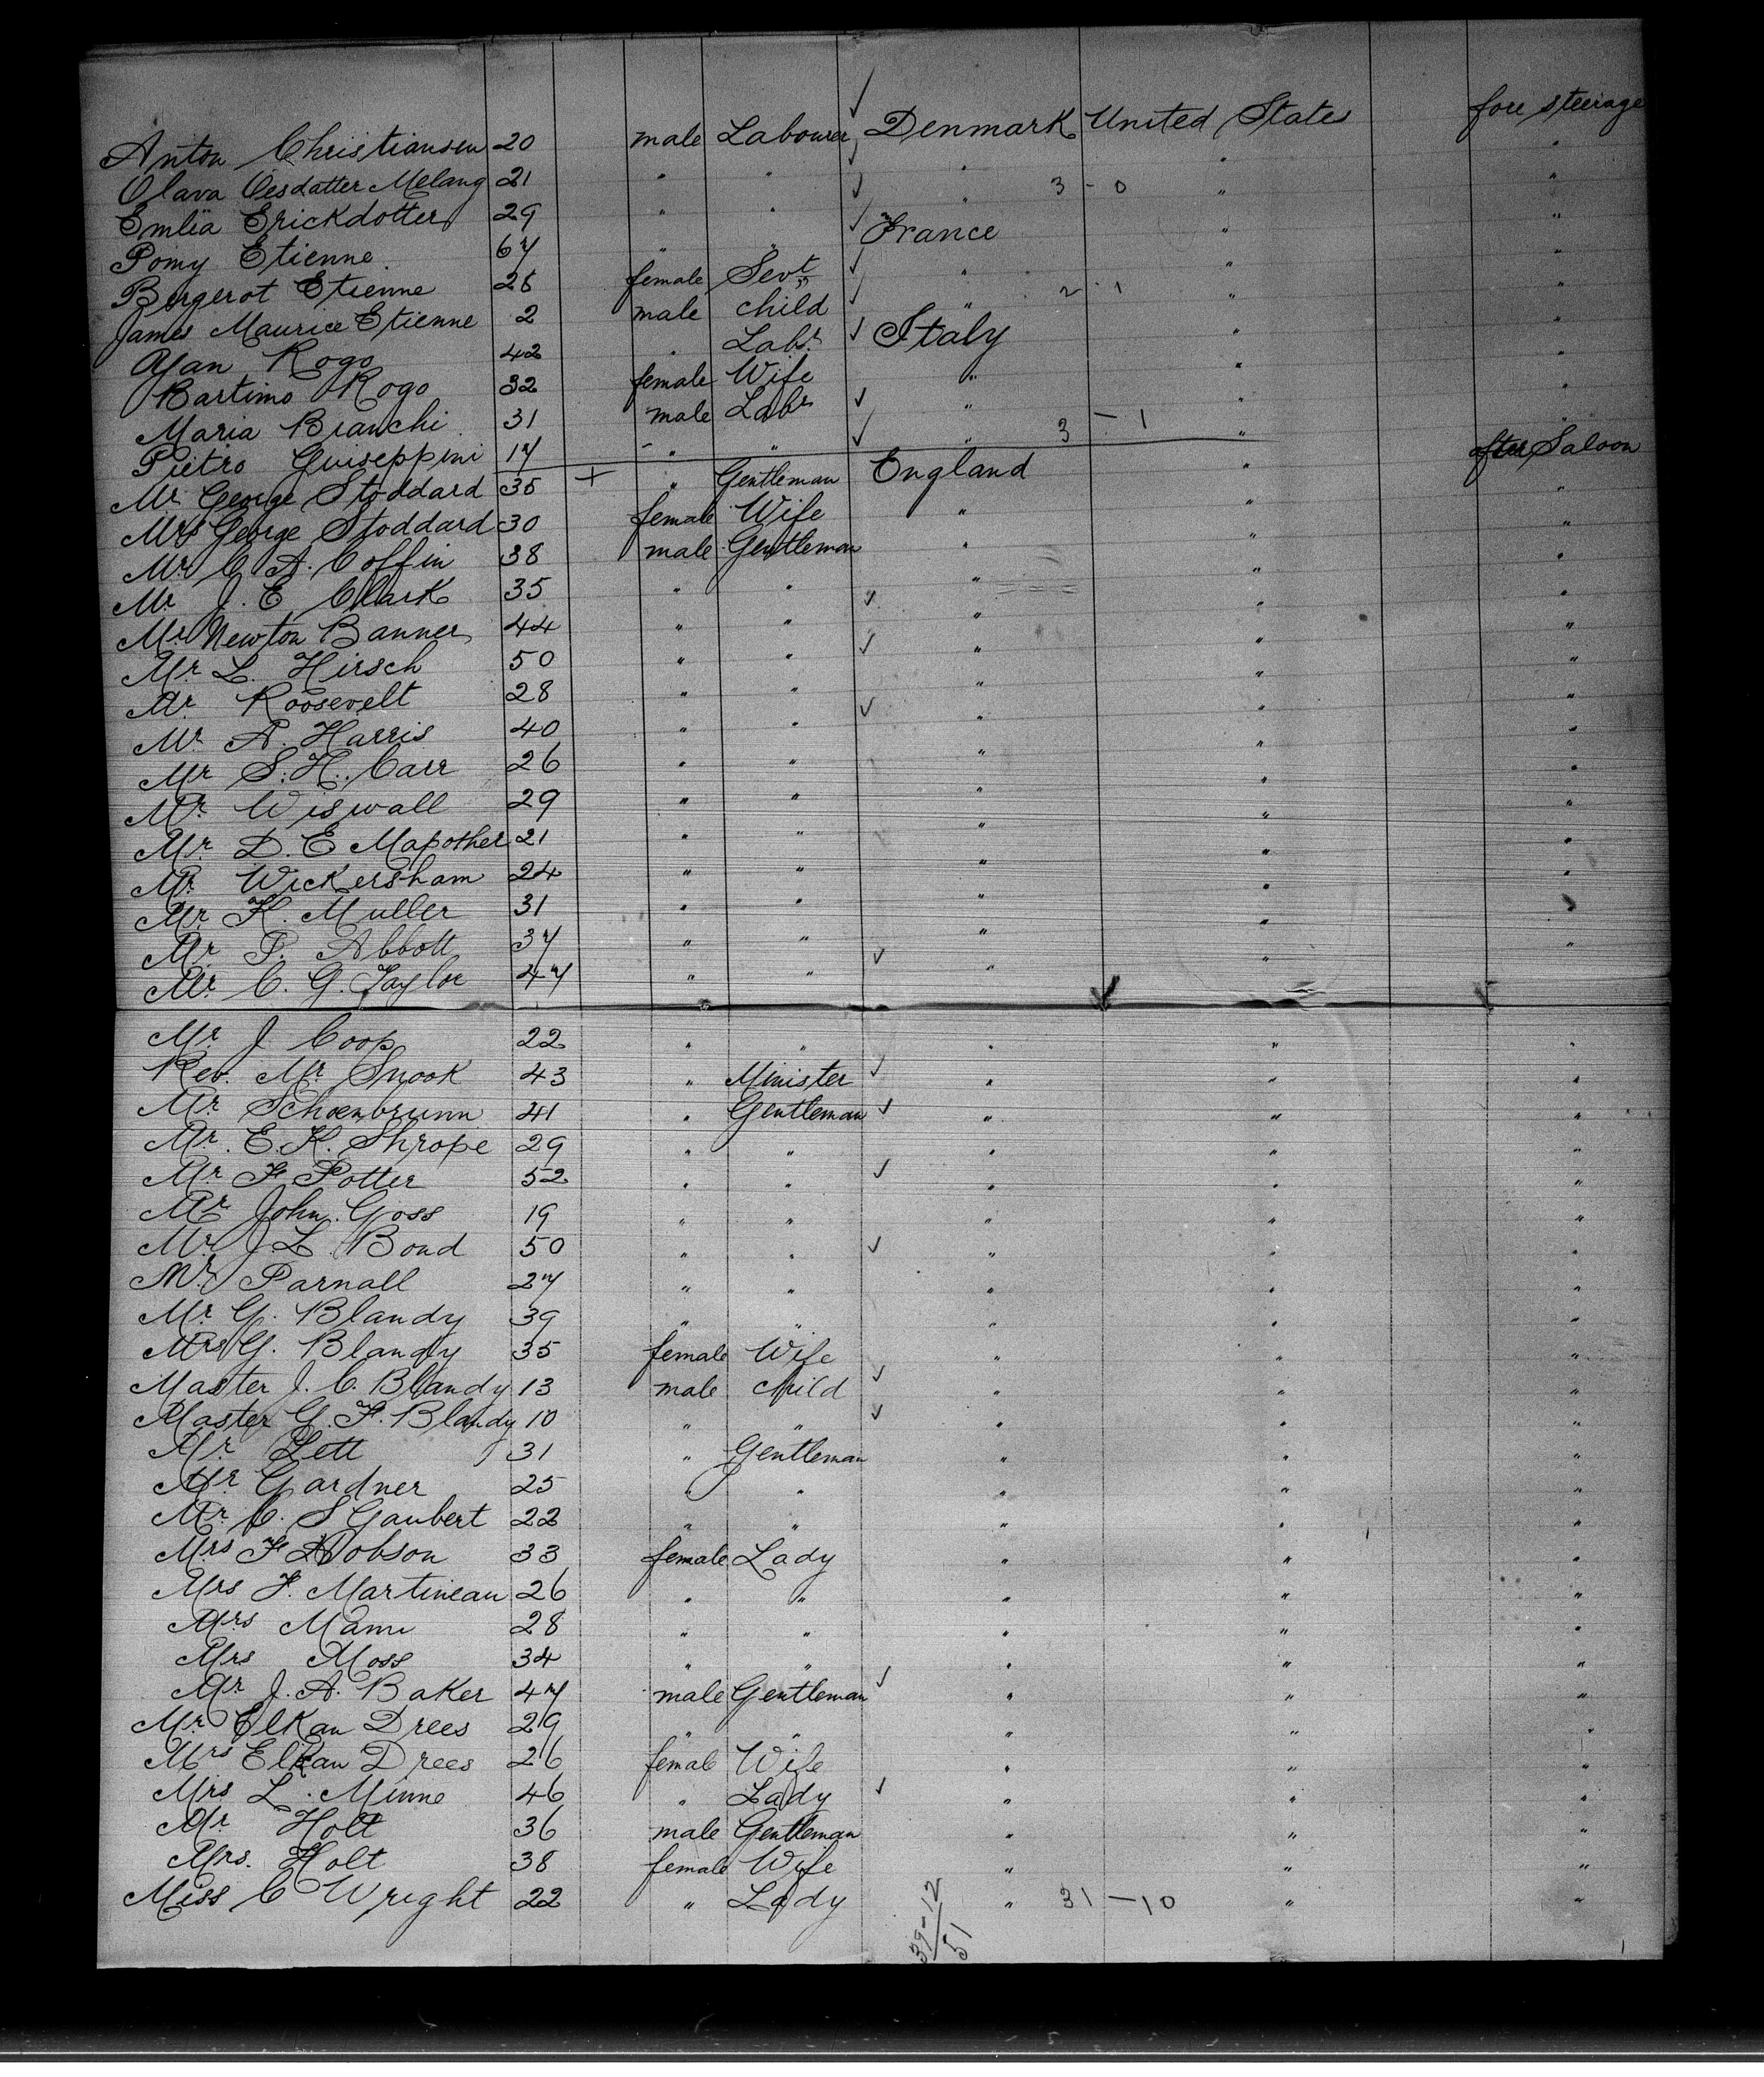 Anton Christiansen 20 male Labourer Denmark United States fore steerage
Olava Oesdatter Melang 21 " " " " "
Emlia Erickdotter 29 " " " 3 - 0 " "
Pomy Etienne 67 " " France " "
Bergerot Etienne 26 female Sevt " " "
James Maurice Etienne 2 male child " 2 - 1 " "
Rogo 42 " Labr Italy " "
Bartimo Rogo 32 female Wife " " "
Maria Bianchi 31 male Labr " " "
Pietro Guiseppini 17 " " " 3 - 1 " "
Mr George Stoddard 35 + " Gentleman England " after Saloon
Mrs George Stoddard 30 female Wife " " "
Mr C. A. Coffin 38 male Gentleman " " "
Mr J. E Clark 35 " " " " "
Mr Newton Banner 44 " " " " "
Mr L. Hirsch 50 " " " " "
Mr Roosevelt 28 " " " " "
Mr A. Harris 40 " " " " "
Mr S. H. Carr 26 " " " " "
Mr Wiswall 29 " " " " "
Mr. D. E Mapother 21 " " " " "
Mr. Wickersham 24 " " " " "
Mr. H. Muller 31 " " " " "
Mr P. Abbott 37 " " " " "
Mr. C. G. Taylor 47 " " "
Mr J Coop 22 " " " " "
Rev. Mr Snook 43 " Minister " " "
Mr Schoenbrunn 41 " Gentleman " " "
Mr. E. K. Shrope 29 " " " " "
Mr F. Potter 52 " " " " "
Mr John Goss 19 " " " " "
Mr J L Bond 50 " " " " "
Mr Parnall 27 " " " " "
Mr G. Blandy 39 " " " " "
Mrs G. Blandy 35 female Wife " " "
Master J. C. Blandy 13 male child " " "
Master G. F. Blandy 10 " " " " "
Mr. Lett 31 " Gentleman " " "
Mr Gardner 25 " " " " "
Mr. C. S Gaubert 22 " " " " "
Mrs F Hobson 33 female Lady " " "
Mrs F. Martineau 26 " " " " "
Mrs Mann 28 " " " " "
Mrs Moss 34 " " " " "
Mr J. A. Baker 47 male Gentleman " " "
Mr Elkan Drees 29 " " " " "
Mrs Elkan Drees 26 female Wife " " "
Mrs L. Minne 46 " Lady " " "
Mr Holt 36 male Gentleman " " "
Mrs. Holt 38 female Wife " " "
Miss C Wright 22 " Lady " 31 - 10 " "
39-12
51